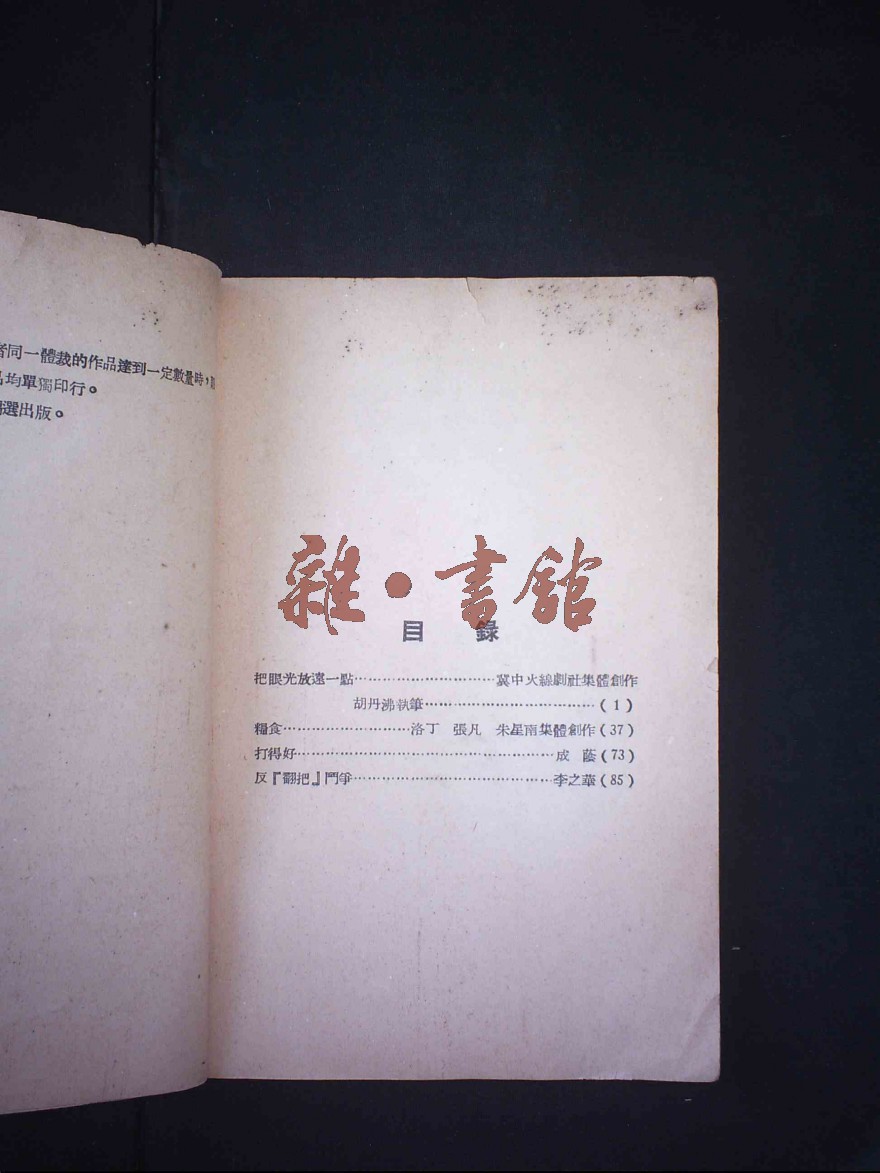 者同一體裁的作品達到一定數量時，
均單獨印行。
選出版。
雜·書館
目　錄
把眼光放遠一點…………………………冀中火線劇社集體創作
胡丹沸執筆………………………………(1)
糧食………………………洛丁　張凡　朱星南集體創作(37)
打得好………………………………………………成　蔭(73)
反『翻把』鬥爭……………………………………李之華(85)